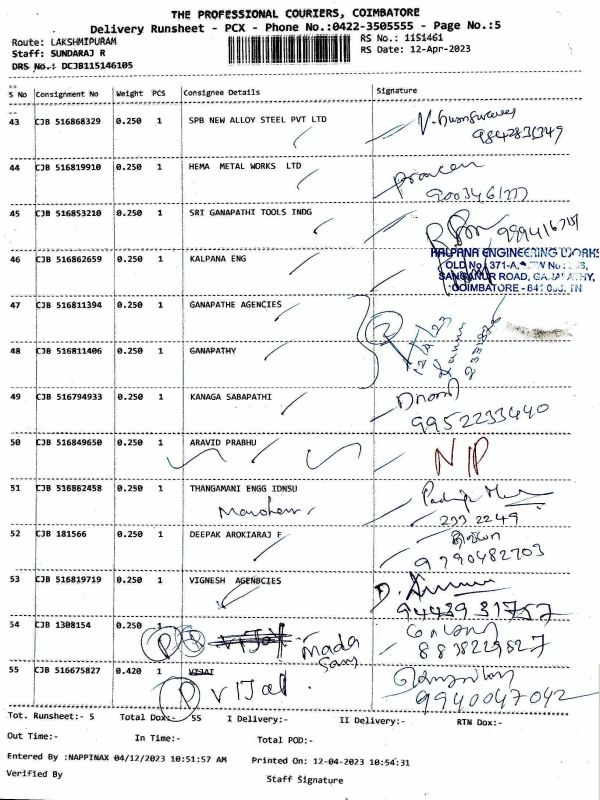 THE PROFESSIONAL COURIERS, COIMBATORE
Delivery Runsheet - PCX - Phone No.:0422-3505555 - Page No.:5
Route: LAKSHMIPURAM
RS No.: 1151461
Staff: SUNDARAJ R
RS Date: 12-Apr-2023
DRS No.: DCJB115146105
S No Consignment No Weight PCS Consignee Details Signature
43 CJB 516868329 0.250 1 SPB NEW ALLOY STEEL PVT LTD
9842831349
44 CJB 516819910 0.250 1 HEMA METAL WORKS LTD
Praveen
9003461277
45 CJB 516853210 0.250 1 SRI GANAPATHI TOOLS INDG
46 CJB 516862659 0.250 1 KALPANA ENG
KALPANA ENGINEERING WORKS
OLD No. 371-A,
SANGANUR ROAD, GANAPATHY,
COIMBATORE - 641 006. TN
47 CJB 516811394 0.250 1 GANAPATHE AGENCIES
12/4/23
48 CJB 516811406 0.250 1 GANAPATHY
49 CJB 516794933 0.250 1 KANAGA SABAPATHI
9952233440
50 CJB 516849650 0.250 1 ARAVID PRABHU
N/P
51 CJB 516862458 0.250 1 THANGAMANI ENGG IDNSU
233 2249
52 CJB 181566 0.250 1 DEEPAK AROKIARAJ F
9790482703
53 CJB 516819719 0.250 1 VIGNESH AGENBCIES
94439 31757
54 CJB 1308154 0.250 1
8838229827
55 CJB 516675827 0.420 1 VIJAI
P VIJAI.
9940047042
Tot. Runsheet:- 5 Total Dox:- 55 I Delivery:- II Delivery:- RTN Dox:-
Out Time:- In Time:- Total POD:-
Entered By :NAPPINAX 04/12/2023 10:51:57 AM Printed On: 12-04-2023 10:54:31
Verified By Staff Signature